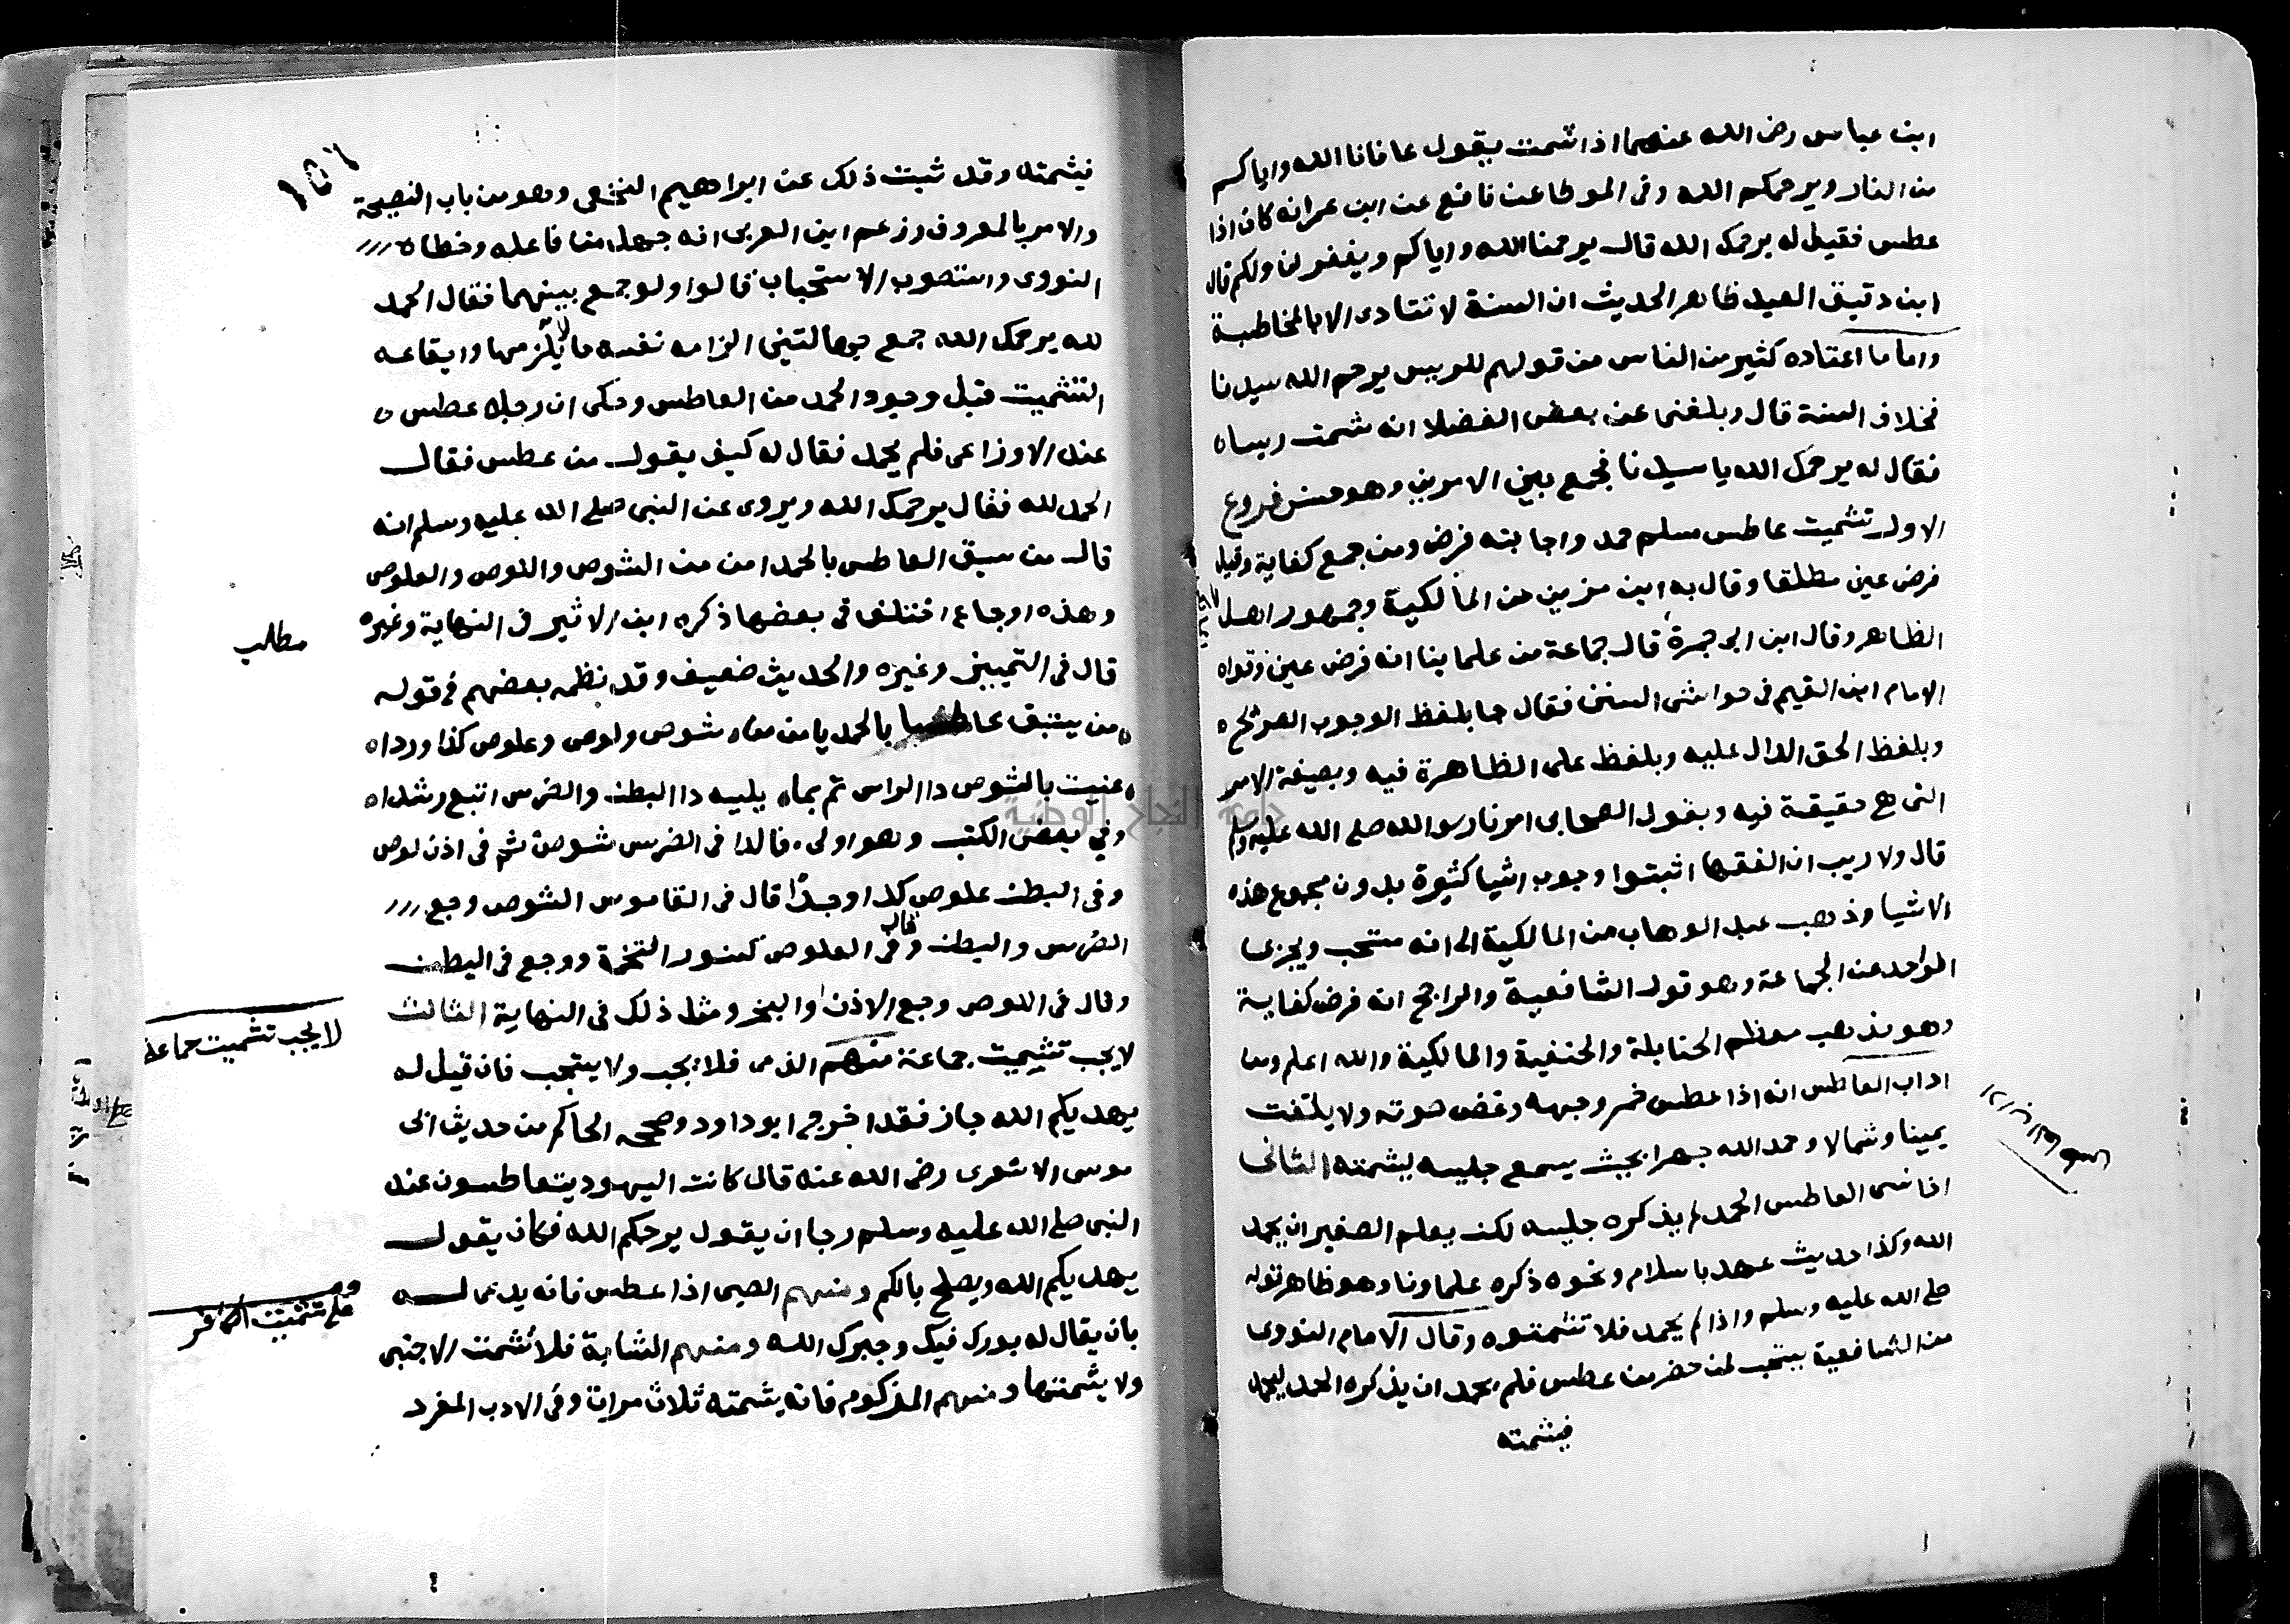 ابن عباس رضى الله عنهما اذا شمت يقول عافانا الله واياكم
من النار ويرحمكم الله وفى الموطا عن نافع عن ابن عمر انه كان اذا
عطس فقيل له يرحمك الله قال يرحمنا الله واياكم ويغفر لنا ولكم قال
ابن دقيق العيد ظاهر الحديث ان السنة لا تتادى الا بالمخاطبة
واما ما اعتاده كثير من الناس من قولهم للرييس يرحم الله سيدنا
فخلاف السنة قال وبلغنى عن بعض الفضلا انه شمت ريسا
فقال له يرحمك الله يا سيدنا فجمع بين الامرين وهو حسن فروع
الاول تشميت عاطس مسلم حمد واجابته فرض ومن جمع كفاية وقيل
فرض عين مطلقا وقال به ابن مزين من المالكية وجمهور اهل
الظاهر وقال ابن ابى جمرة قال جماعة من علماينا انه فرض عين وقواه
الامام ابن القيم فى حواشى السنن فقال جا بلفظ الوجوب الصريح
وبلفظ الحق الدال عليه وبلفظ على الظاهرة فيه وبصيغة الامر
التى هى حقيقة فيه وبقول الصحابى امرنا رسو الله صلى الله عليه وسلم
قال ولا ريب ان الفقها اثبتوا وجوب اشيا كثيرة بدون مجموع هذه
الاشيا وذهب عبد الوهاب من المالكية الى انه مستحب ويجزى
الواحد عن الجماعة وهو قول الشافعية والراجح انه فرض كفاية
وهو مذهب معظم الحنابلة والحنفية والمالكية والله اعلم ومن
اداب العاطس انه اذا عطس خمر وجهه وغض صوته ولا يلتفت
يمينا وشمالا وحمد الله جهرا بحيث يسمع جليسه ليشمته الثانى
اذا نسى العاطس الحمد لم يذكره جليسه لكن يعلم الصغير ان يحمد
الله وكذا حديث عهد باسلام ونحوه ذكره علماونا وهو ظاهر قوله
صلى الله عليه وسلم واذا لم يحمد فلا تشمتوه وقال الامام النووى
من الشافعية يستحب لمن حضر من عطس فلم يحمد ان يذكره الحمد ليحمد
فيشمته
١٥٦
فيشمته وقد ثبت ذلك عن ابراهيم النخعى وهو من باب النصيحة
والامر بالمعروف وزعم ابن العربى انه جهل من فاعله وخطاه
النووى واستصوب الاستحباب قالوا ولو جمع بينهما فقال الحمد
لله يرحمك الله جمع جهالتين الزامه نفسه ما لا يلزمها وايقاعه
التشميت قبل وجود الحمد من العاطس وحكى ان رجلا عطس
عند الاوزاعى فلم يحمد فقال له كيف يقول من عطس فقال
الحمد لله فقال يرحمك الله ويروى عن النبى صلى الله عليه وسلم انه
قال من سبق العاطس بالحمد امن من الشوص واللوص والعلوص
وهذه اوجاع اختلف فى بعضها ذكره ابن الاثير فى النهاية وغيره
مطلب
قال فى التمييز وغيره والحديث ضعيف وقد نظمه بعضهم فى قوله
من يستبق عاطسا بالحمد يامن من شوص ولوص وعلوص كذا وردا
عنيت بالشوص دا الراس ثم بما يليه دا البطن والضرس اتبع رشدا
وفي بعض الكتب وهو اولى فالدا فى الضرس شوص ثم فى اذن لوص
وفى البطن علوص كذا وجدا قال فى القاموس الشوص وجع
الضرس والبطن وقال فى العلوص كسنور التخمة ووجع فى البطن
وقال فى اللوص وجع الاذن والنحر ومثل ذلك فى النهاية الثالث
لا يجب تشميت جماعة منهم الذمى فلا يجب ولا يستحب فان قيل له
لا يجب تشميت جماعة
يهديكم الله جاز فقد اخرج ابو داود وصححه الحاكم من حديث ابى
موسى الاشعرى رضى الله عنه قال كانت اليهود يتعاطسون عند
النبى صلى الله عليه وسلم رجا ان يقول يرحمكم الله فكان يقول
يهديكم الله ويصلح بالكم ومنهم الصبى اذا عطس فانه يدعى له
على تشميت الكافر
بان يقال له بورك فيك وجبرك الله ومنهم الشابة فلا تشمت الاجنبى
ولا يشمتها ومنهم المزكوم فانه يشمته ثلاث مرات وفى الادب المفرد
جامعة النجاح الوطنية